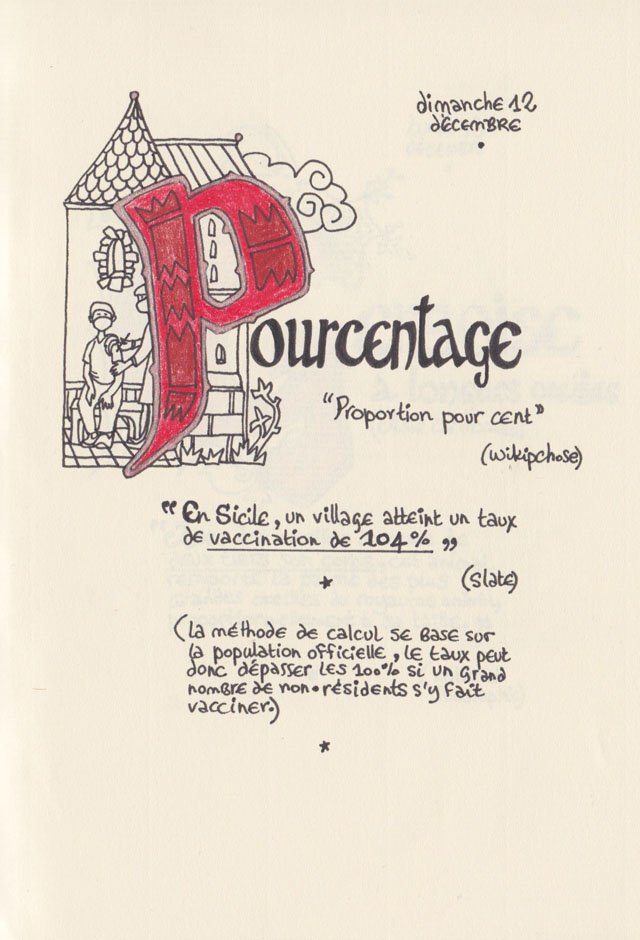 dimanche 12
décembre
Pourcentage
"Proportion pour cent"
(wikipchose)
"En Sicile, un village atteint un taux
de vaccination de 104% "
(Slate)
(la méthode de calcul se base sur
la population officielle, le taux peut
donc dépasser les 100% si un grand
nombre de non-résidents s'y fait
vacciner.)